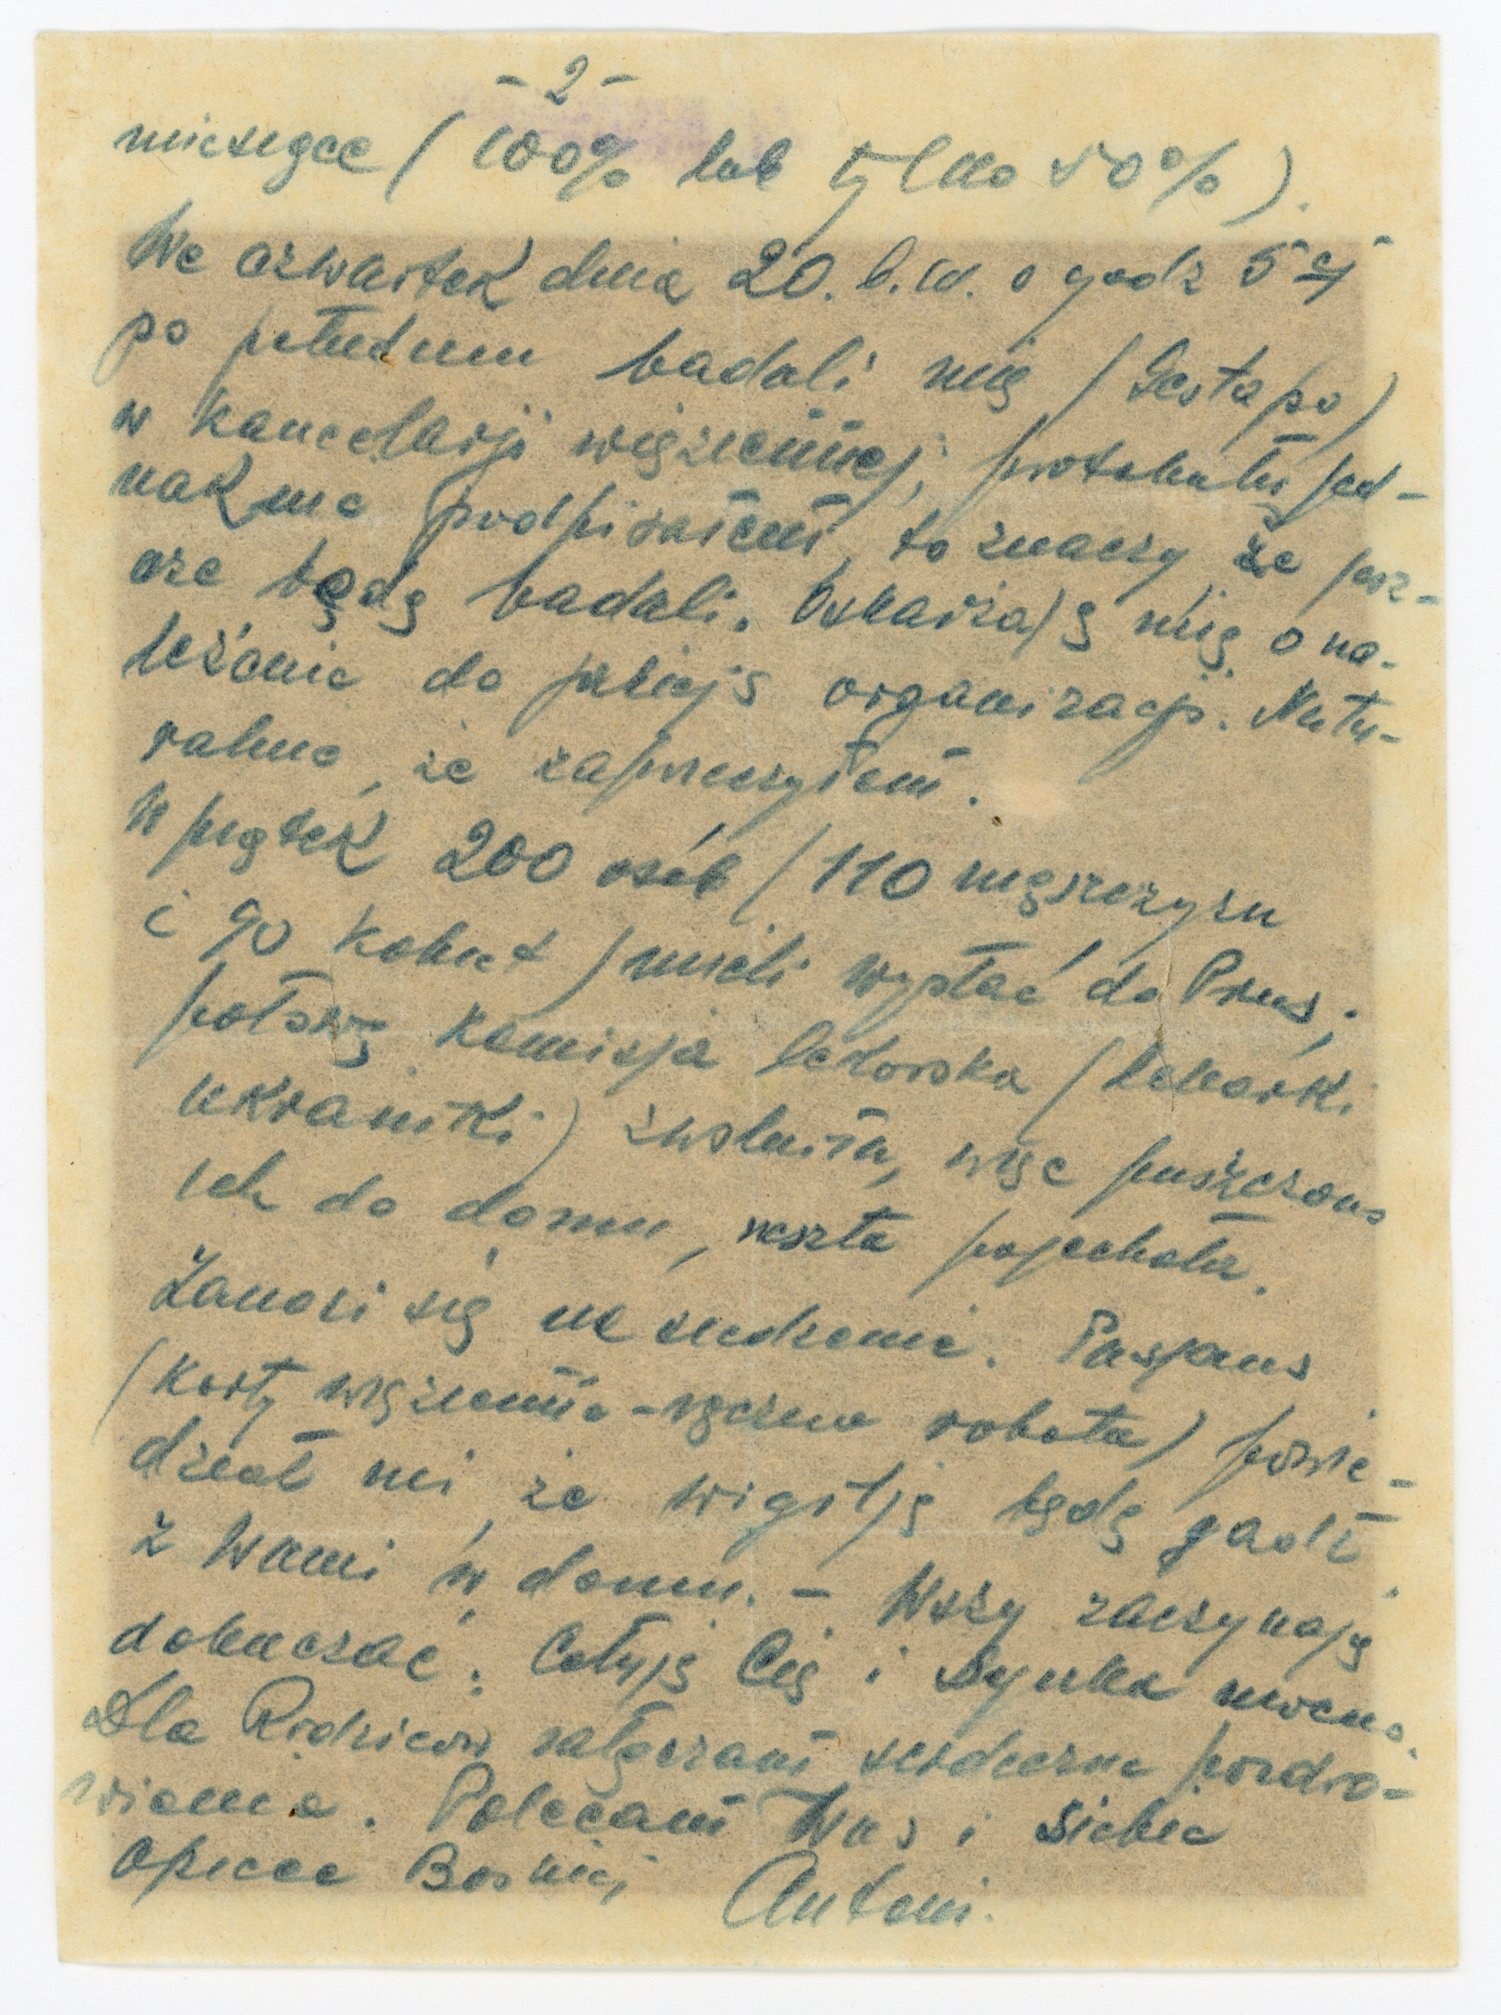 - 2 -
miesiące (100% lub tylko 50%).
We czwartek dnia 20. b.m. o godz 5 ej
po południu badali mię (Gestapo)
w kancelarji więziennej, protokułu jed-
nak nie podpisałem, to znaczy że jesz-
cze będą badali. Oskarżają mię o na-
leżenie do jakiejś organizacji. Natu-
ralnie, że zaprzeczyłem.
W piątek 200 osób (110 mężczyzn
i 90 kobiet) mieli wysłać do Prus,
połowę komisja lekarska (lekarki
ukrainki) zwolniła, więc puszczono
ich do domu, reszta pojechała.
Zanosi się na siedzenie. Pasjans
(karty więzienne - ręczna robota) powie-
dział mi, że wigilję będę jadł
z Wami w domu. - Wszy zaczynają
dokuczać. Całuję Cię i Synka mocno.
Dla Rodziców załączam serdeczne pozdro-
wienia. Polecam Was i siebie
opiece Boskiej
Antoni.